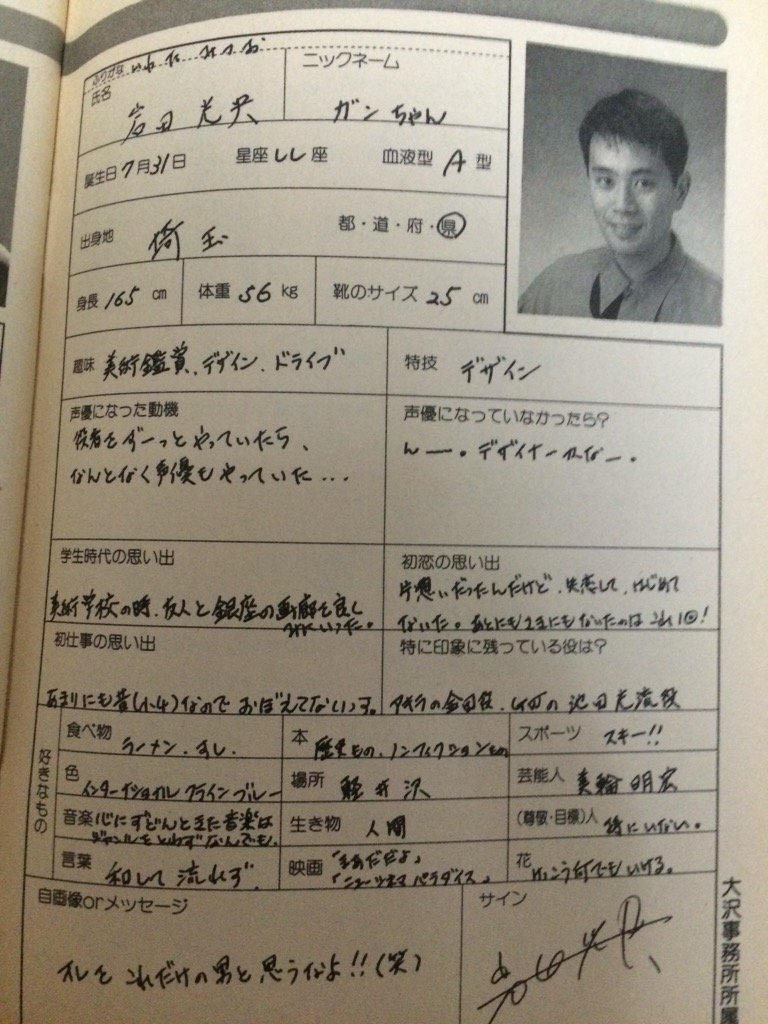 ふりがな いわた みつお
氏名 岩田光央
ニックネーム ガンちゃん
誕生日 7月31日 星座 しし座 血液型 A型
出身地 埼玉 都・道・府・県
身長 165 cm 体重 56 kg 靴のサイズ 25 cm
趣味 美術鑑賞、デザイン、ドライブ
特技 デザイン
声優になった動機
役者をずーっとやっていたら、
なんとなく声優もやっていた...
声優になっていなかったら?
んー。デザイナーかなー。
学生時代の思い出
美術学校の時、友人と銀座の画廊を良く
みにいった。
初恋の思い出
片想いだったんだけど、失恋して、はじめて
ないた。あとにもさきにもないたのはこれ1回!
初仕事の思い出
あまりにも昔(小4)なのでおぼえてないっす。
特に印象に残っている役は?
アキラの金田役、の池田光流役
好きなもの
食べ物 ラーメン、すし、
本 歴史もの、ノンフィクションもの
スポーツ スキー!!
色 インターナショナルクラインブルー
場所 軽井沢
芸能人 美輪明宏
音楽 心にずどんときた音楽は
ジャンルをとわずなんでも。
生き物 人間
(尊敬・目標)人 特にいない。
言葉 和して流れず
映画 「まあだだよ」
「ニューシネマパラダイス」
花 けっこう何でもいける。
自画像orメッセージ
オレをこれだけの男と思うなよ!!(笑)
サイン
岩田光央
大沢事務所所属